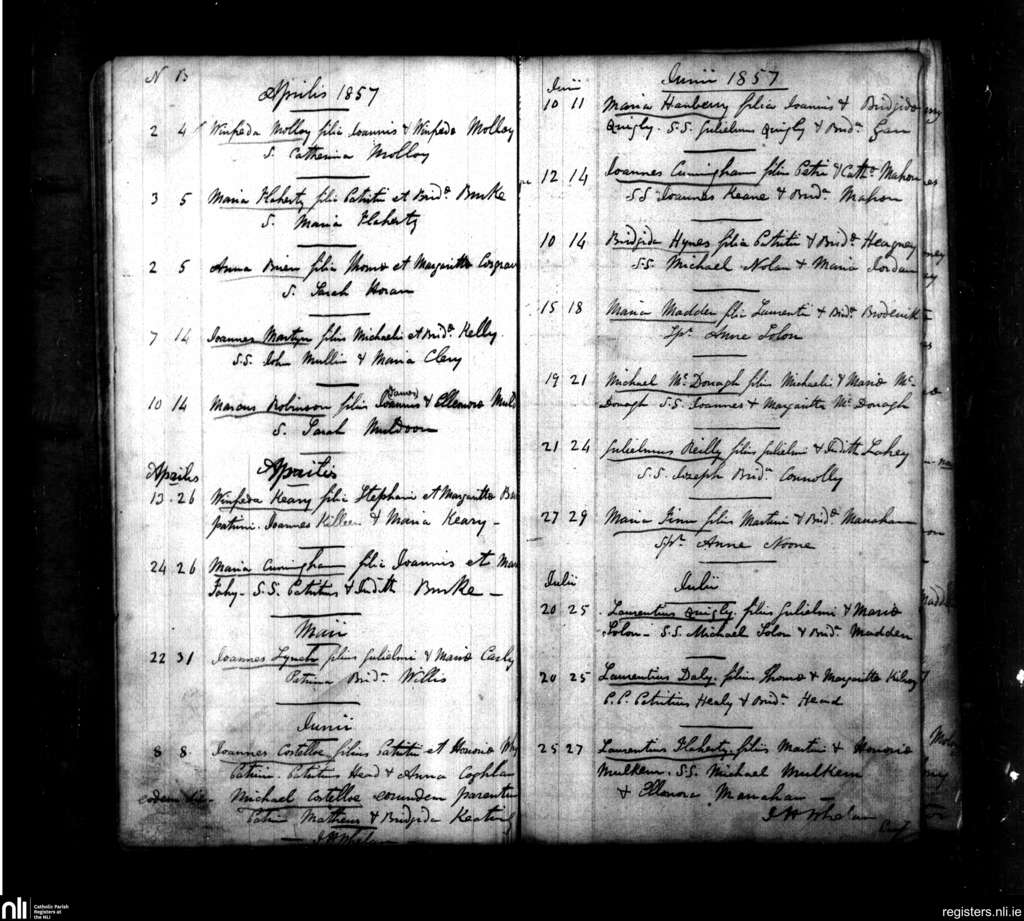 N B
Aprilis 1857
2 4 Winifreda Molloy filia Joannis & Winifreda Molloy
S. Catherina Molloy
3 5 Maria Flaherty filia Patritii et Brid.ª Burke
S. Maria Flaherty
2 5 Anna Brien filia Thomæ et Margaritta
S. Sarah Horan
7 14 Joannes Martyn filius Michaelis et Brid.ª Kelly.
S.S. John Mullin & Maria Clery
(James)
10 14 Marcus Robinson filius Joannis & Ellenoræ
S. Sarah Muldoon
Aprilis
Aprilis
13. 26 Winifreda Keary filia Stephani et Margaritta
Patrini. Joannes Killeen & Maria Keary -
24 26 Maria Cuningham filia Joannis et
Fahy - S.S. Patritius & Judith Burke -
Maii
22 31 Joannes Lynch filius Gulielmi & Mariæ
Patrina Brid.ª Willis
Junii
8 8. Joannes Costelloe filius Patritii et Honoriæ
Patrini. Patritius Head & Anna Coghlan
eodem die - Michael Costelloe eorundem
Patrini Matheus & Bridgida
- J W Whelan -
Junii 1857
Junii
10 11 Maria Hanberry filia Joannis & Bridgidæ
Quigly. S.S. Gulielmus Quigly & Brid.ª
12 14 Joannes Cuningham filius Patrii & Cath.ª Mahon
S S Joannes Keane & Brid.ª Mahon
10 14 Bridgida Hynes filia Patritii & Brid.ª Heagney
S.S. Michael Nolan & Maria Jordan
15 18 Maria Madden filia Laurentii & Brid.ª Broderick
Spr. Anne Solon
19 21 Michael Mc Donagh filius Michaelis & Mariæ Mc
Donagh. S.S. Joannes & Margaritta Mc Donagh
21 24 Gulielmus Reilly filius Gulielmi & Judith Lahey
S.S. Joseph Brid.ª Connolly
27 29 Maria Finn filia Martini & Brid.ª Manahan
Spr. Anne Noone
Julii Julii
20 25 Laurentius Quigly. filius Gulielmi & Mariæ
Solon - S.S. Michael Solon & Brid.ª Madden
20 25 Laurentius Daly. filius Thomæ & Margaritta
P.P. Patritius Healy & Brid.ª Head
25 27 Laurentius Flaherty. filius Martini & Honoriæ
Mulkern. S.S. Michael Mulkern
& Ellenora Manahan -
J W Whelan
nli Catholic Parish
Registers at
the NLI
registers.nli.ie